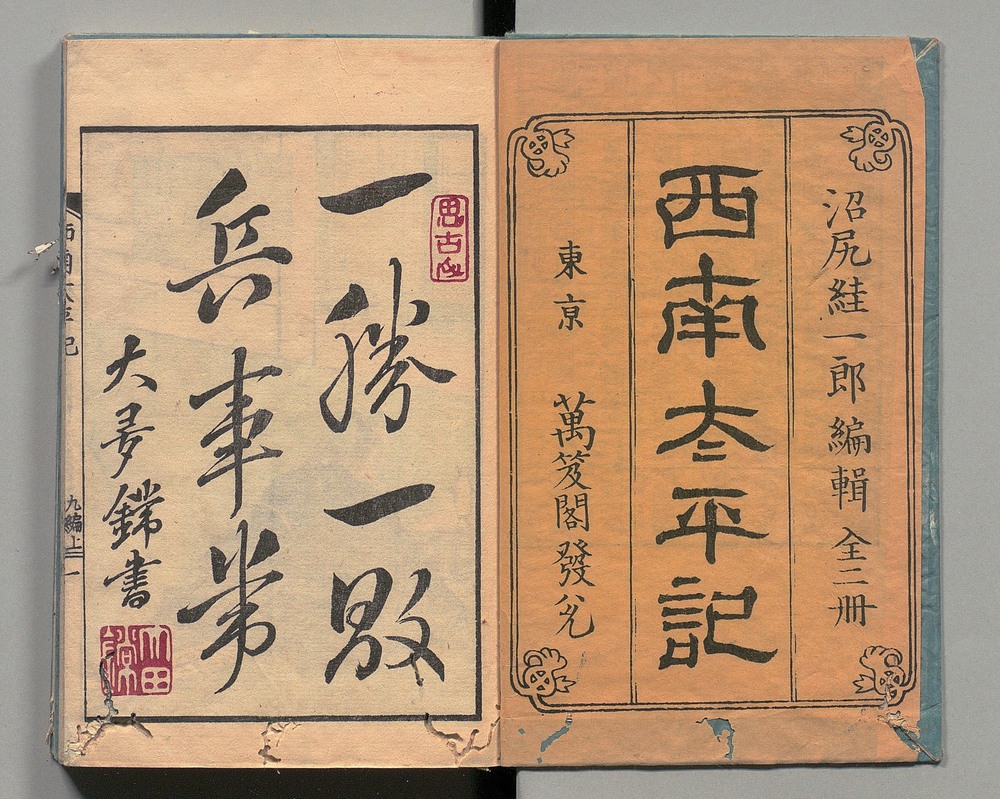 沼尻絓一郎編輯 全二冊
西南太平記
東京 萬笈閣發兌
思古
一勝一敗
兵事常
大夢鐺書
西南太平記
九編上 一